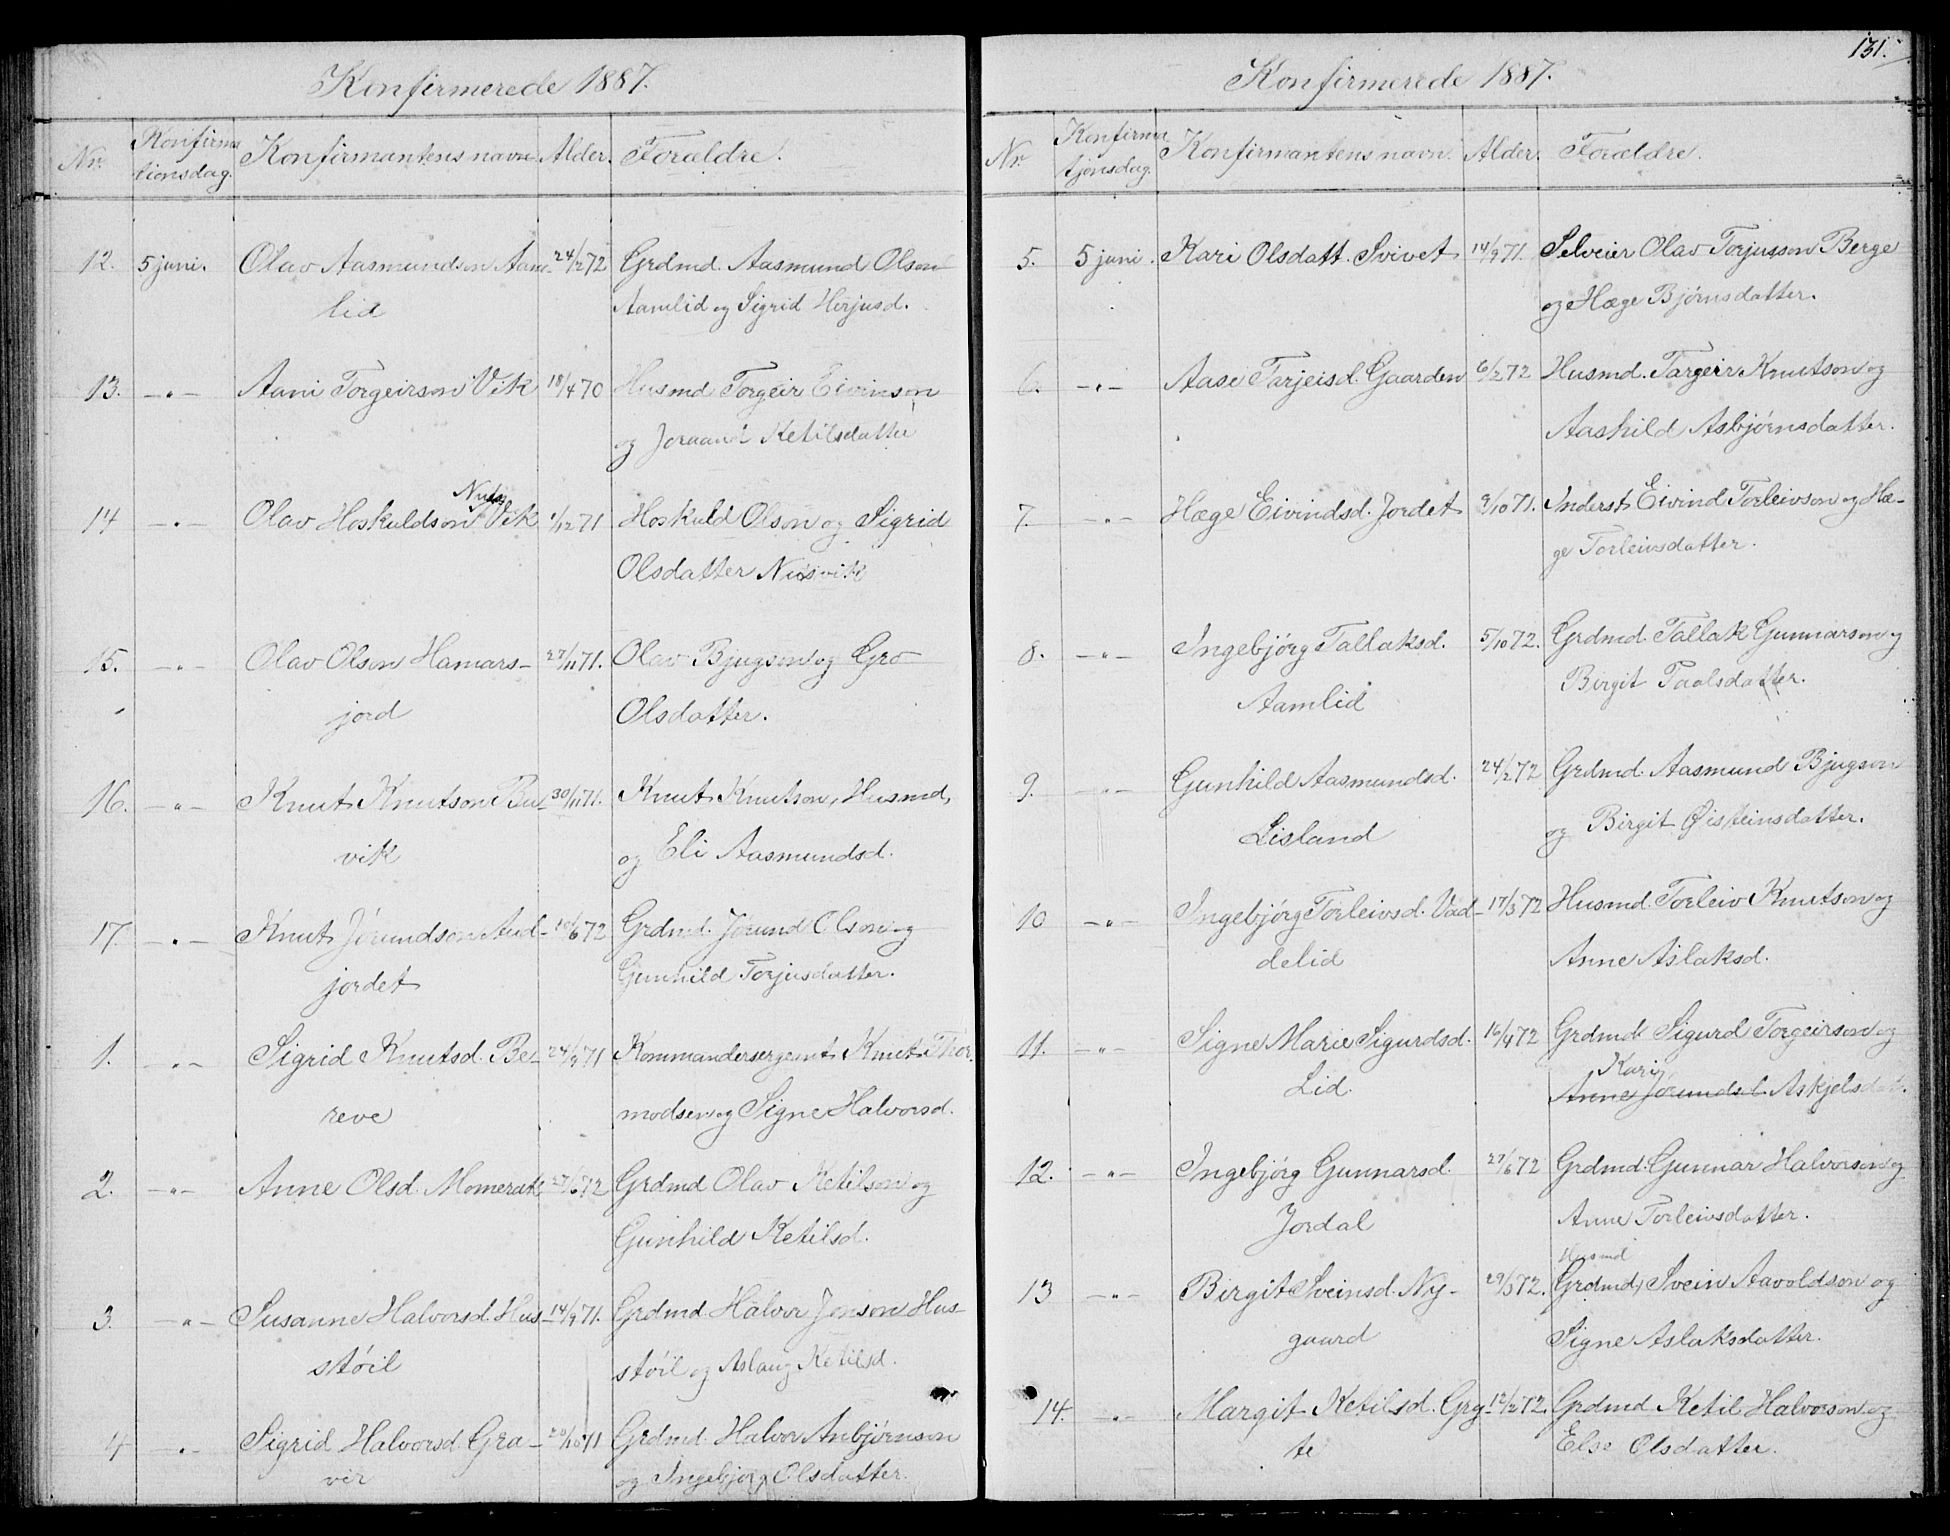 Konfirmerede 1887.
Nr. Konfirma Konfirmantens navn Alder. Forældre.
tionsdag.
12. 5 juni. Olav Aasmundson Aam- 24/2 72 Grdmd. Aasmund Olson
lid Aamlid og Sigrid Herjusd.
13. -"- Aani Torgeirson Vik 18/4 70 Husmd Torgeir Eivinson
og Joraand Ketilsdatter
Nus
14 -"- Olav Hoskuldson Vik 1/12 71 Hoskuld Olson og Sigrid
Olsdatter Nusvik
15. -"- Olav Olson Hamars- 27/11 71. Olav Bjugson og Gro
jord Olsdatter.
16. -"- Knut Knutson Bu- 30/11 71. Knut Knutson, Husmd,
vik og Eli Aasmundsd.
17. -"- Knut Jörundson Aud- 10/6 72 Grdmd. Jörund Olson og
jordet Gunhild Torjusdatter.
1. -"- Sigrid Knutsd. Be- 24/9 71 Kommandersergeant Knut Thor
reve modsen og Signe Halvorsd.
2. -"- Anne Olsd. Momerak 27/6 72 Grdmd Olav Ketilson og
Gunhild Ketilsd.
3. -"- Susanne Halvorsd. Hus- 14/9 71. Grdmd Halvor Jonson Hus-
stöil stöil og Aslaug Ketilsd.
4 "- Sigrid Halvorsd. Gra- 20/10 71 Grdmd. Halvor Anbjörnson
ver og Ingebjörg Olsdatter.
131.
Konfirmerede 1887.
Nr. Konfirma Konfirmantens navn. Alder. Forældre.
tjonsdag.
5. 5 juni. Kari Olsdatt. Svivet 14/9 71. Selveier Olav Torjusson Berge
og Hæge Björnsdatter.
6. -"- Aase Tarjeisd. Gaarden 6/2 72 Husmd. Targeir Knutson og
Aashild Asbjörnsdatter.
7. -"- Hæge Eivindsd. Jordet 9/10 71. Inderst Eivind Torleivson og Hæ-
ge Torleivsdatter.
8. -"- Ingebjörg Tallaksd. 5/10 72. Grdmd. Tallak Gunnarson og
Aamlid Birgit Paalsdatter.
9. -"- Gunhild Aasmundsd. 24/2 72 Grdmd. Aasmund Bjugson
Lisland og Birgit Øisteinsdatter.
10 -"- Ingebjörg Torleivsd. Vad- 17/3 72 Husmd. Torleiv Knutson og
delid Anne Aslaksd.
11. -"- Signe Marie Sigurdsd. 16/4 72 Grdmd Sigurd Torgeirson og
Kari
Lid. Anne Jörundsd. Askjelsdat.
12. -"- Ingebjörg Gunnarsd. 27/6 72 Grdmd. Gunnar Halvorson og
Jordal Anne Torleivsdatter.
Husmd
13 -"- Birgit Sveinsd. Ny- 29/3 72. Grdmd, Svein Aavoldson og
gaard Signe Aslaksdatter.
14. -"- Margit Ketilsd. Gry- 12/2 72. Grdmd Ketil Halvorson og
te Else Olsdatter.